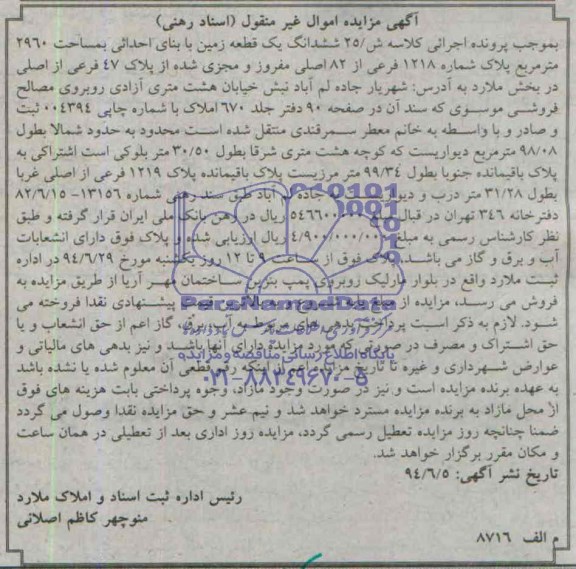 آگهی مزایده اموال غیر منقول (اسناد رهنی)
بموجب پرونده اجرائی کلاسه ش/۲۵ ششدانگ یک قطعه زمین با بنای احداثی بمساحت ۲۹۶۰
مترمربع پلاک شماره ۱۲۱۸ فرعی از ۸۲ اصلی مفروز و مجزی شده از پلاک ۴۷ فرعی از اصلی
در بخش ملارد به آدرس: شهریار جاده لم آباد نبش خیابان هشت متری آزادی روبروی مصالح
فروشی موسوی که سند آن در صفحه ۹۰ دفتر جلد ۶۷۰ املاک با شماره چاپی ۰۰۴۳۹۴ ثبت
و صادر و با واسطه به خانم معطر سمرقندی منتقل شده است محدود به حدود شمالا بطول
۹۸/۰۸ مترمربع دیواریست که کوچه هشت متری شرقا بطول ۳۰/۵۰ متر بلوکی است اشتراکی به
پلاک باقیمانده جنوبا بطول ۹۹/۳۴ متر مرزیست پلاک باقیمانده پلاک ۱۲۱۹ فرعی از اصلی غربا
بطول ۳۱/۲۸ متر درب و دیوار جاده لم آباد طبق سند رهنی شماره ۱۳۱۵۶- ۸۲/۶/۱۵
دفترخانه ۳۴۶ تهران در قبال مبلغ ریال در رهن بانک ملی ایران قرار گرفته و طبق
نظر کارشناس رسمی به مبلغ ۴/۹۰۰/۰۰۰/۰۰۰ ریال ارزیابی شده و پلاک فوق دارای انشعابات
آب و برق و گاز می باشد. پلاک فوق از ساعت ۹ تا ۱۲ روز یکشنبه مورخ ۹۴/۶/۲۹ در اداره
ثبت ملارد واقع در بلوار مارلیک روبروی پمپ بنزین ساختمان مهر آریا از طریق مزایده به
فروش می رسد، مزایده از مبلغ پایه شروع و به بالاترین قیمت پیشنهادی نقدا فروخته می
شود. لازم به ذکر است پرداخت بدهی های مربوط به آب، برق، گاز اعم از حق انشعاب و یا
حق اشتراک و مصرف در صورتی که مورد مزایده دارای آنها باشد و نیز بدهی های مالیاتی و
عوارض شهرداری و غیره تا تاریخ مزایده اعم از اینکه رقم قطعی آن معلوم شده یا نشده باشد
به عهده برنده مزایده است و نیز در صورت وجود مازاد، وجوه پرداختی بابت هزینه های فوق
از محل مازاد به برنده مزایده مسترد خواهد شد و نیم عشر و حق مزایده نقدا وصول می گردد
ضمنا چنانچه روز مزایده تعطیل رسمی گردد، مزایده روز اداری بعد از تعطیلی در همان ساعت
و مکان مقرر برگزار خواهد شد.
تاریخ نشر آگهی: ۹۴/۶/۵
رئیس اداره ثبت اسناد و املاک ملارد
منوچهر کاظم اصلانی
م الف ۸۷۱۶
ParsNamadData
پایگاه اطلاع رسانی مناقصه و مزایده
۰۲۱-۸۸۳۴۹۶۷۰-۵